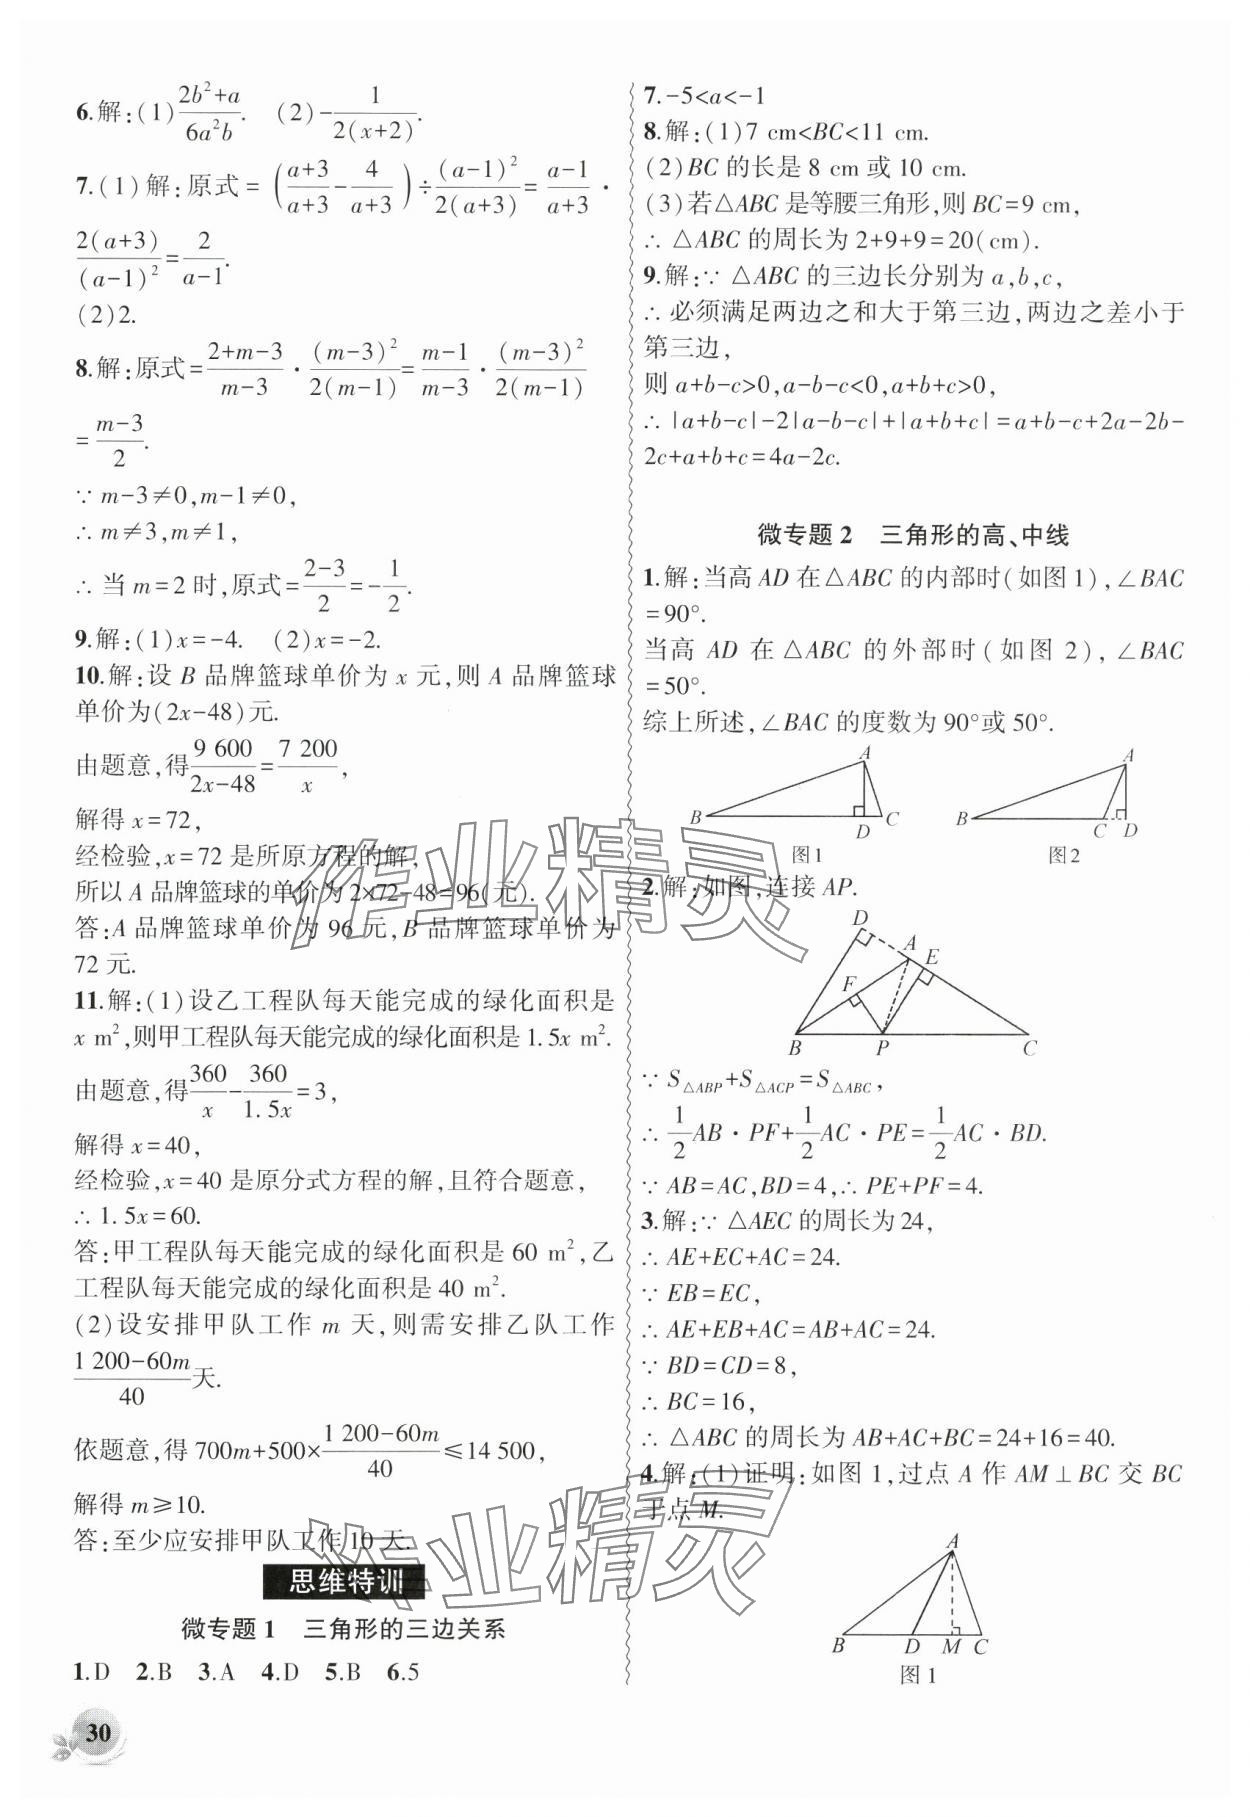 6.解:(1)\frac{2b²+a}{6a²b}. (2)-\frac{1}{2(x+2)}.
7.(1)解:原式=(\frac{a+3}{a+3}-\frac{4}{a+3})÷\frac{(a-1)²}{2(a+3)}=\frac{a-1}{a+3}·
\frac{2(a+3)}{(a-1)²}=\frac{2}{a-1}.
(2)2.
8.解:原式=\frac{2+m-3}{m-3}·\frac{(m-3)²}{2(m-1)}=\frac{m-1}{m-3}·\frac{(m-3)²}{2(m-1)}
=\frac{m-3}{2}.
∵m-3≠0,m-1≠0,
∴m≠3,m≠1,
∴当m=2时,原式=\frac{2-3}{2}=-\frac{1}{2}.
9.解:(1)x=-4. (2)x=-2.
10.解:设B品牌篮球单价为x元,则A品牌篮球
单价为(2x-48)元.
由题意,得\frac{9 600}{2x-48}=\frac{7 200}{x},
解得x=72,
经检验,x=72是所原方程的解,
所以A品牌篮球的单价为2×72-48=96(元).
答:A品牌篮球单价为96元,B品牌篮球单价为
72元.
11.解:(1)设乙工程队每天能完成的绿化面积是
x m²,则甲工程队每天能完成的绿化面积是1.5x m².
由题意,得\frac{360}{x}-\frac{360}{1.5x}=3,
解得x=40,
经检验,x=40是原分式方程的解,且符合题意,
∴1.5x=60.
答:甲工程队每天能完成的绿化面积是60 m²,乙
工程队每天能完成的绿化面积是40 m².
(2)设安排甲队工作m天,则需安排乙队工作
\frac{1 200-60m}{40}天.
依题意,得700m+500×\frac{1 200-60m}{40}≤14 500,
解得m≥10.
答:至少应安排甲队工作10天.
思维特训
微专题1 三角形的三边关系
1.D 2.B 3.A 4.D 5.B 6.5
30
7.-5<a<-1
8.解:(1)7 cm<BC<11 cm.
(2)BC的长是8 cm或10 cm.
(3)若△ABC是等腰三角形,则BC=9 cm,
∴△ABC的周长为2+9+9=20(cm).
9.解:∵△ABC的三边长分别为a,b,c,
∴必须满足两边之和大于第三边,两边之差小于
第三边,
则a+b-c>0,a-b-c<0,a+b+c>0,
∴|a+b-c|-2|a-b-c|+|a+b+c|=a+b-c+2a-2b-
2c+a+b+c=4a-2c.
微专题2 三角形的高、中线
1.解:当高AD在△ABC的内部时(如图1),∠BAC
=90°.
当高AD在△ABC的外部时(如图2),∠BAC
=50°.
综上所述,∠BAC的度数为90°或50°.
A
B
D
C
图1
A
B
C
D
图2
2.解:如图,连接AP.
D
A
E
F
B
P
C
∵S△ABP+S△ACP=S△ABC,
∴\frac{1}{2}AB·PF+\frac{1}{2}AC·PE=\frac{1}{2}AC·BD.
∵AB=AC,BD=4,∴PE+PF=4.
3.解:∵△AEC的周长为24,
∴AE+EC+AC=24.
∵EB=EC,
∴AE+EB+AC=AB+AC=24.
∵BD=CD=8,
∴BC=16,
∴△ABC的周长为AB+AC+BC=24+16=40.
4.解:(1)证明:如图1,过点A作AM⊥BC交BC
于点M.
A
B
D
M
C
图1
作业精灵
作业精灵